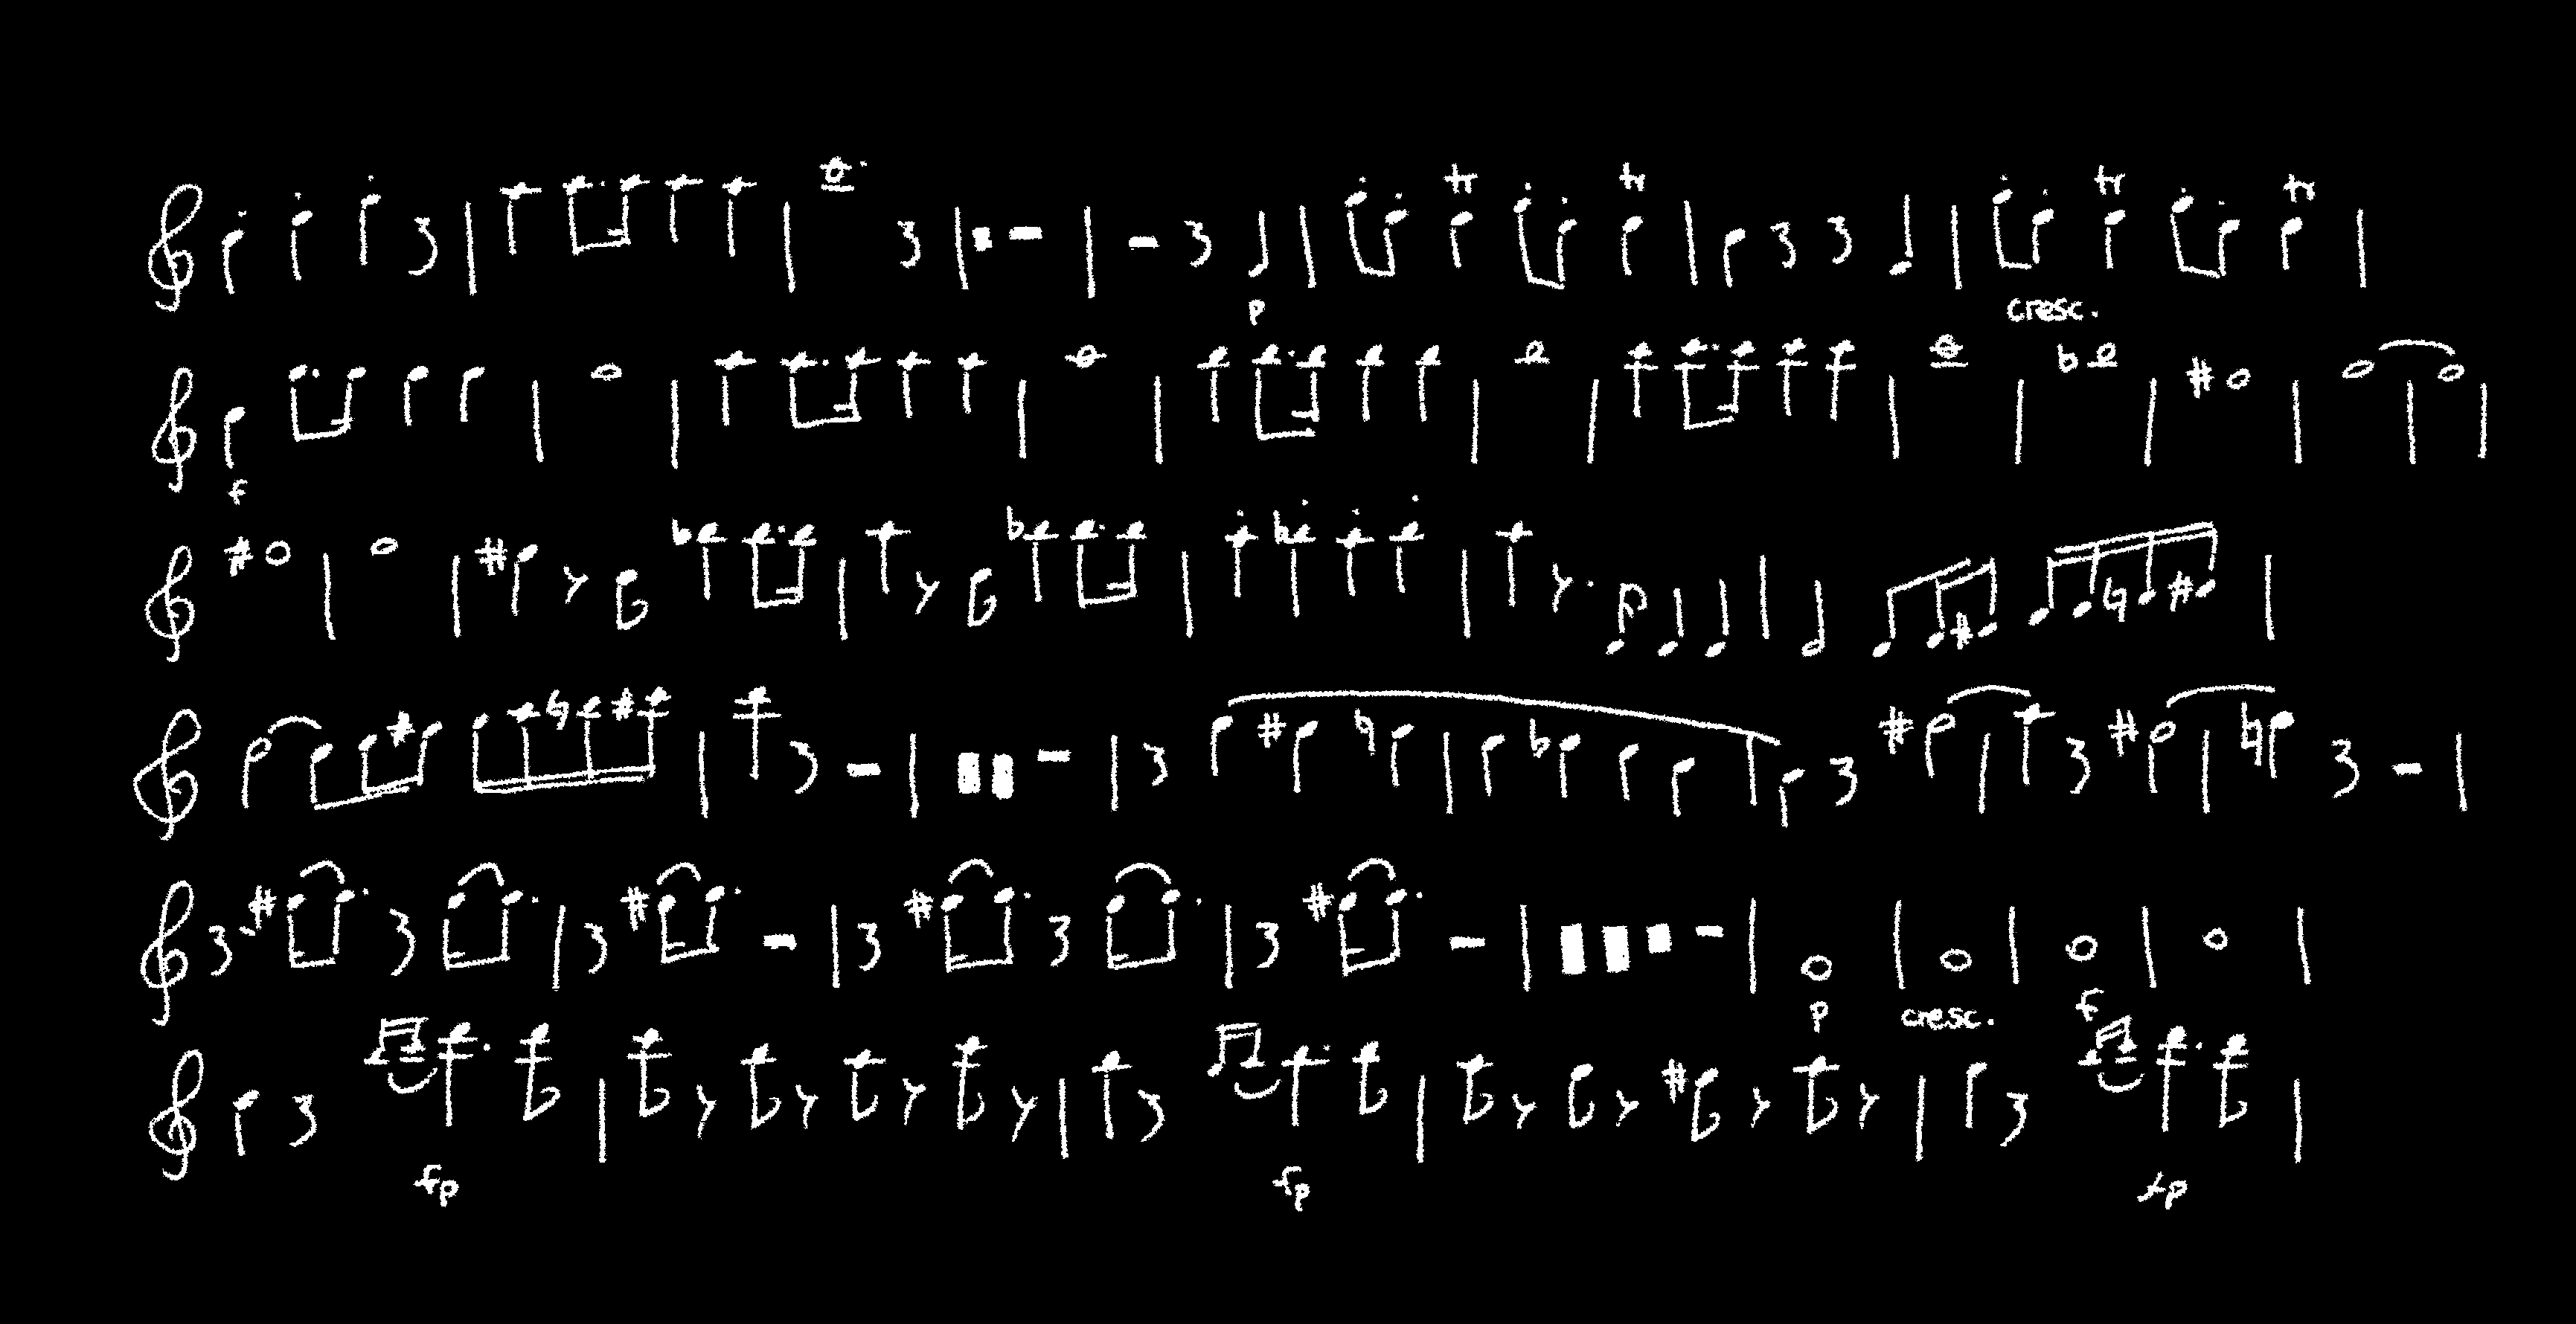 tr tr tr tr
p cresc.
f
p cresc. f
fp fp fp